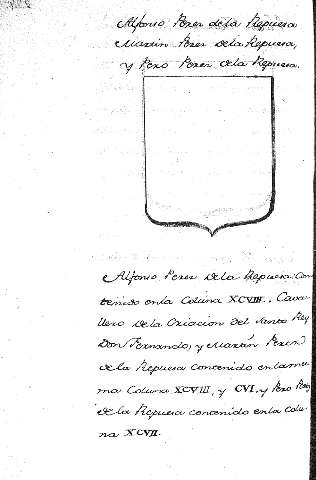 Alfonso Perez de la Repuesa
Martin Perez de la Repuesa,
y Pero Perez de la Repuesa.
Alfonso Perez de la Repuesa Con
tenido en la Coluna XCVIII. Cava-
llero de la Criacion del Santo Rey
Don Fernando, y Martin Perez
de la Repuesa contenido en la mis
ma Coluna XCVIII, y CVI, y Pero Perez
de la Repuesa contenido en la Colu-
na XCVII.